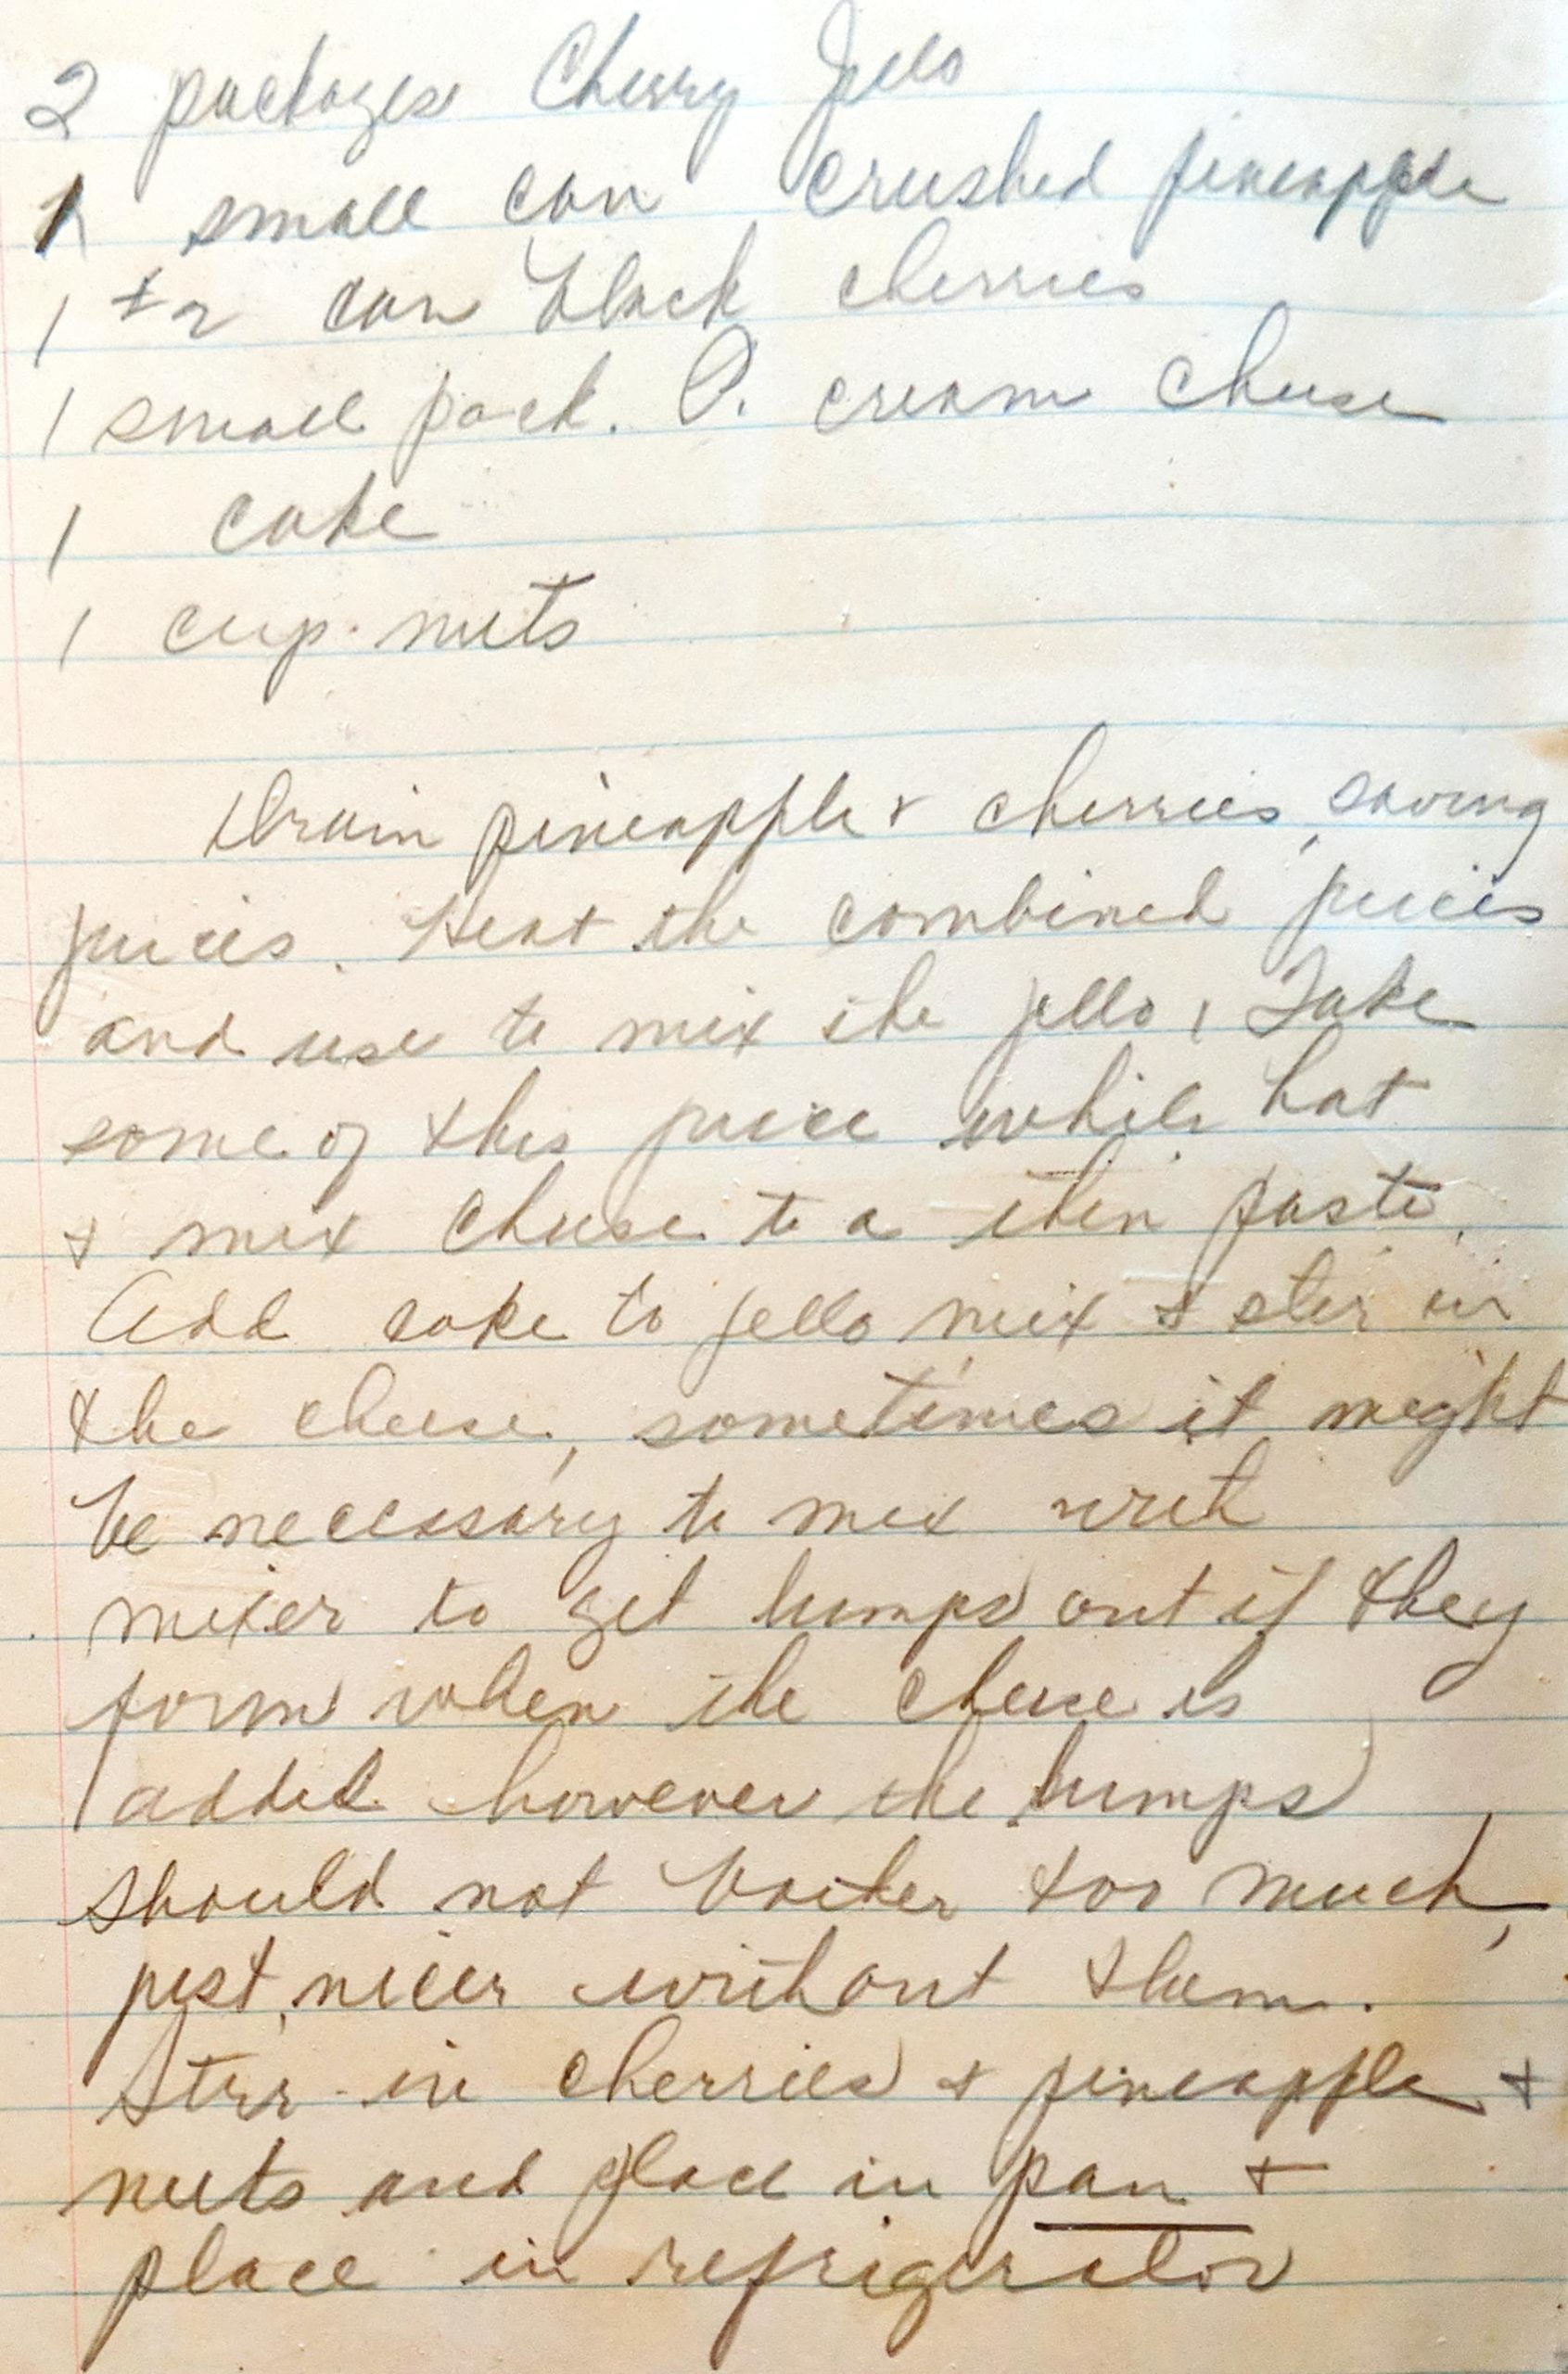 2 packages Cherry Jello
1 small can crushed pineapple
1 #2 can black cherries
1 small pack. P. cream cheese
1 coke
1 cup nuts
Drain pineapple & cherries, saving
juices. Heat the combined juices
and use to mix the jello, Take
some of this juice while hot
& mix cheese to a thin paste.
Add coke to jello mix & stir in
the cheese, sometimes it might
be necessary to mix with
mixer to get lumps out if they
form when the cheese is
added however the lumps
should not bother too much,
just nicer without them.
Stir in cherries & pineapple &
nuts and place in pan &
place in refrigerator